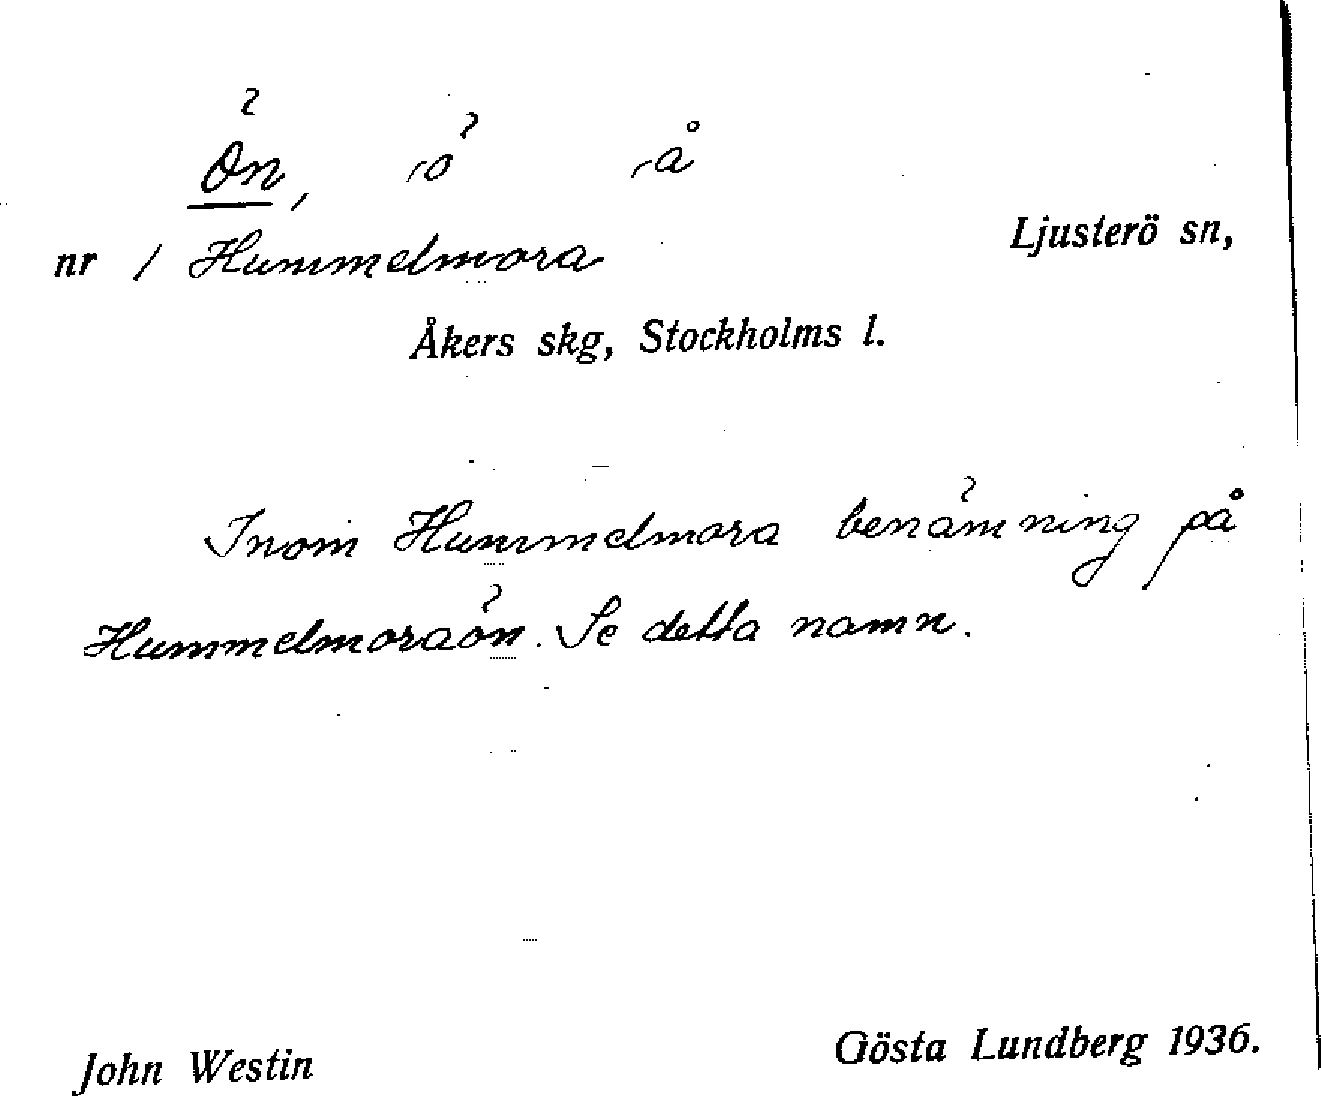 Ön, -ö -å
nr 1 Hummelmora Ljusterö sn,
Åkers skg, Stockholms l.
Inom Hummelmora benämning på
Hummelmoraön. Se detta namn.
John Westin Gösta Lundberg 1936.